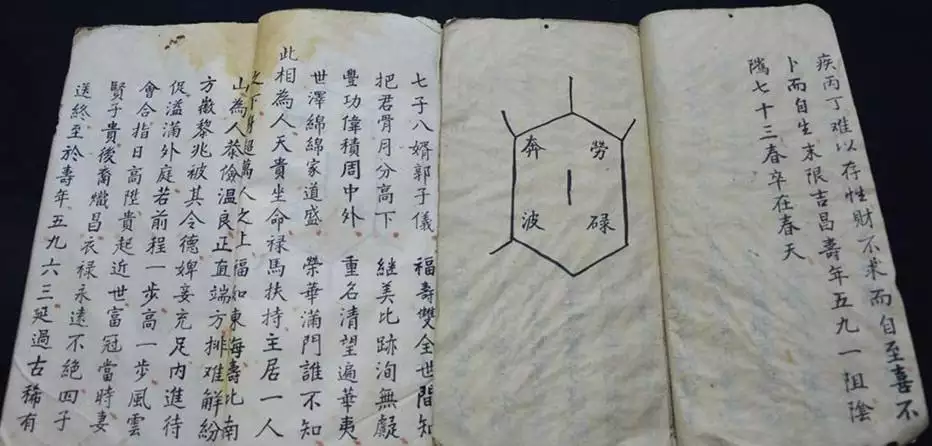 疾丙丁難以存性財不求而自至喜不
卜而自生末限吉昌壽年五九一阻陰
隲七十三春卒在春天
勞碌
奔波
七子八婿郭子儀 福壽雙全世間知
把君骨月分高下 継美比跡洵無疑
豐功偉積周中外 重名清望遍華夷
世澤綿綿家道盛 榮華滿門誰不知
此相為人天貴坐命祿馬扶持主居一人
之下身超萬人之上福如東海壽比南
山為人恭儉溫良正直端方排難解紛
方徽黎兆被其令德婢妾充足內進待
促溢滿外庭若前程一步高一步風雲
會合指日高陞貴起近世富冠當時妻
賢子貴後裔熾昌衣祿永遠不絕四子
送終至於壽年五九六三延過古稀有